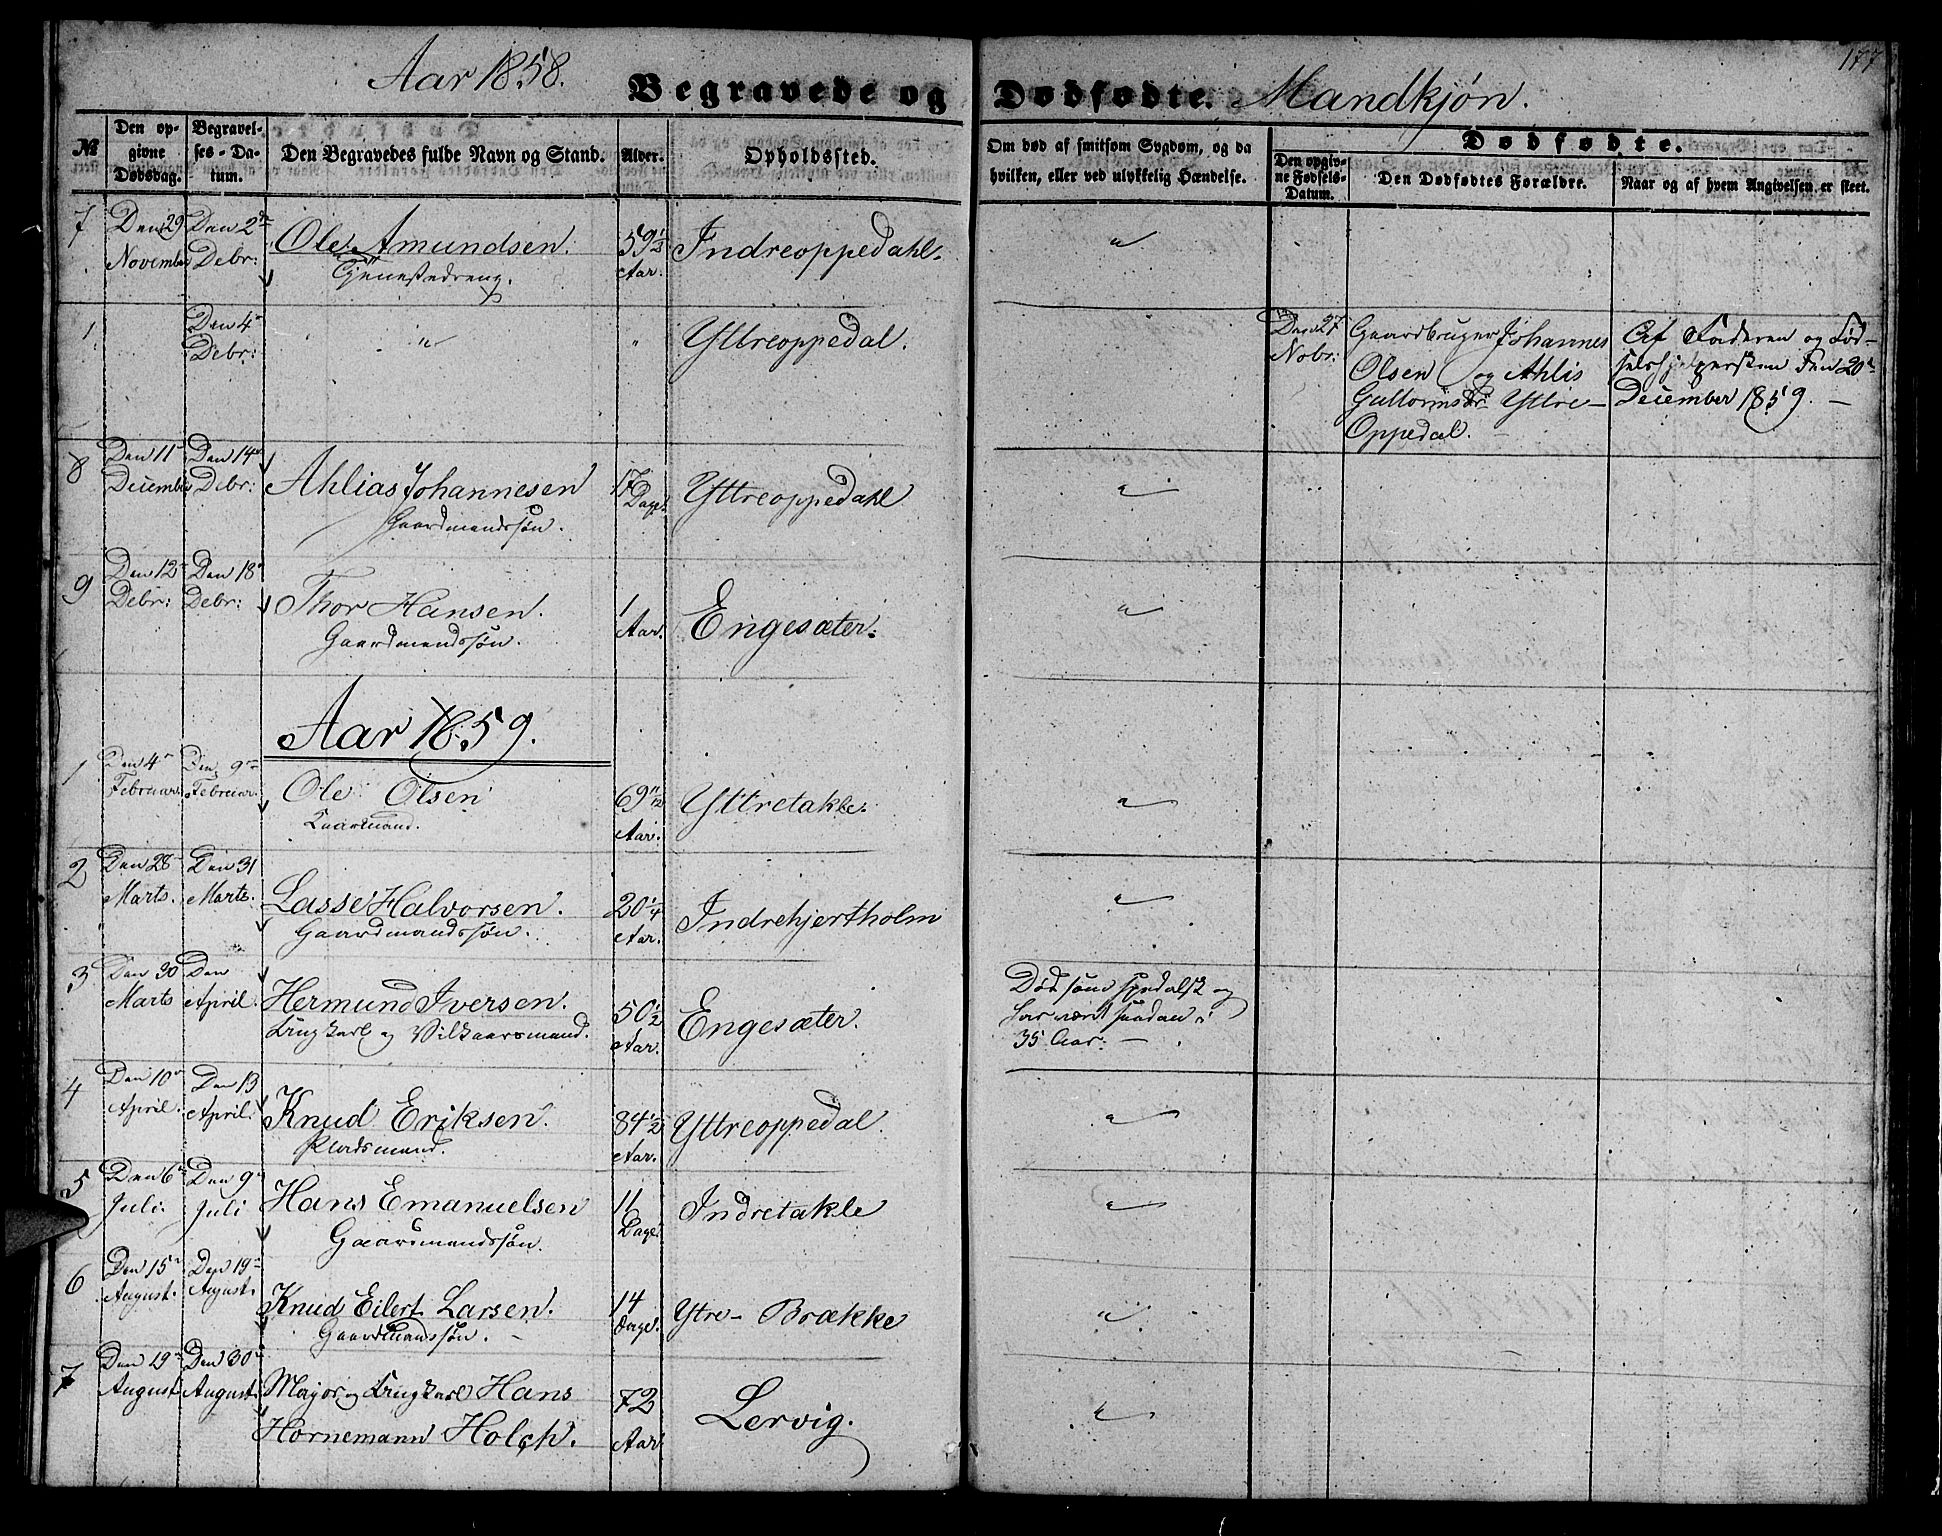 177
Aar 1858. Begravede og Dødfødte. Mandkjøn.
№
Den opgivne Dødsdag.
Begravelses-Datum.
Den Begravedes fulde Navn og Stand.
Alder.
Opholdssted.
Om død af smitsom Sygdom, og da hvilken, eller ved ulykkelig Hændelse.
Dødfødte.
Den opgivne Fødsels-Datum.
Den Dødfødtes Forældre.
Naar og af hvem Angivelsen er skeet.
7 Den 29 November Den 2den Debr: Ole Amundsen. 59 1/2 Aar. Indreoppedahl. "
Tjenestedreng.
1 Den 4de Debr: " " Yttreoppedal. Den 27 Nobr: Gaardbruger Johannes Af Faderen og Fød-
Olsen og Ahlis selshjelpersken Den 20de
Guttormsdr Yttre- December 1859. —
Oppedal. —
8 Den 11te December Den 14de Debr: Ahlias Johannesen 17 Dage. Yttreoppedahl "
Gaardmandssøn.
9 Den 12te Debr: Den 18de Debr: Thor Hansen. 1 Aar. Engesæter. "
Gaardmandssøn.
Aar 1859.
1 Den 4de Februar. Den 9de Februar. Ole Olsen 69 11/12 Aar. Yttretakle. "
2 Den 28de Marts. Den 31 Marts. Lasse Halvorsen. 20 1/4 Aar. Indrehjertholm "
Gaardmandssøn.
3 Den 30 Marts Den April. Hermund Iversen. 50 1/2 Aar. Engesæter. Død som spedalsk og
Ungkarl og Vilkaarsmand. har været saadan i
35 Aar. —
4 Den 10de April. Den 13 April. Knud Eriksen. 84 1/2 Aar. Yttreoppedal "
Pladsmand.
5 Den 6te Juli. Den 9de Juli Hans Emanuelsen 11 Dage. Indretakle "
Gaardmandssøn.
6 Den 15de August. Den 19de August. Knud Eilert Larsen. 14 Dage. Ytre-Brække "
Gaardmandssøn. —
7 Den 29de August Den 30de August. Major og Ungkarl Hans 72 Aar Lervig. "
Hornemann Holck.